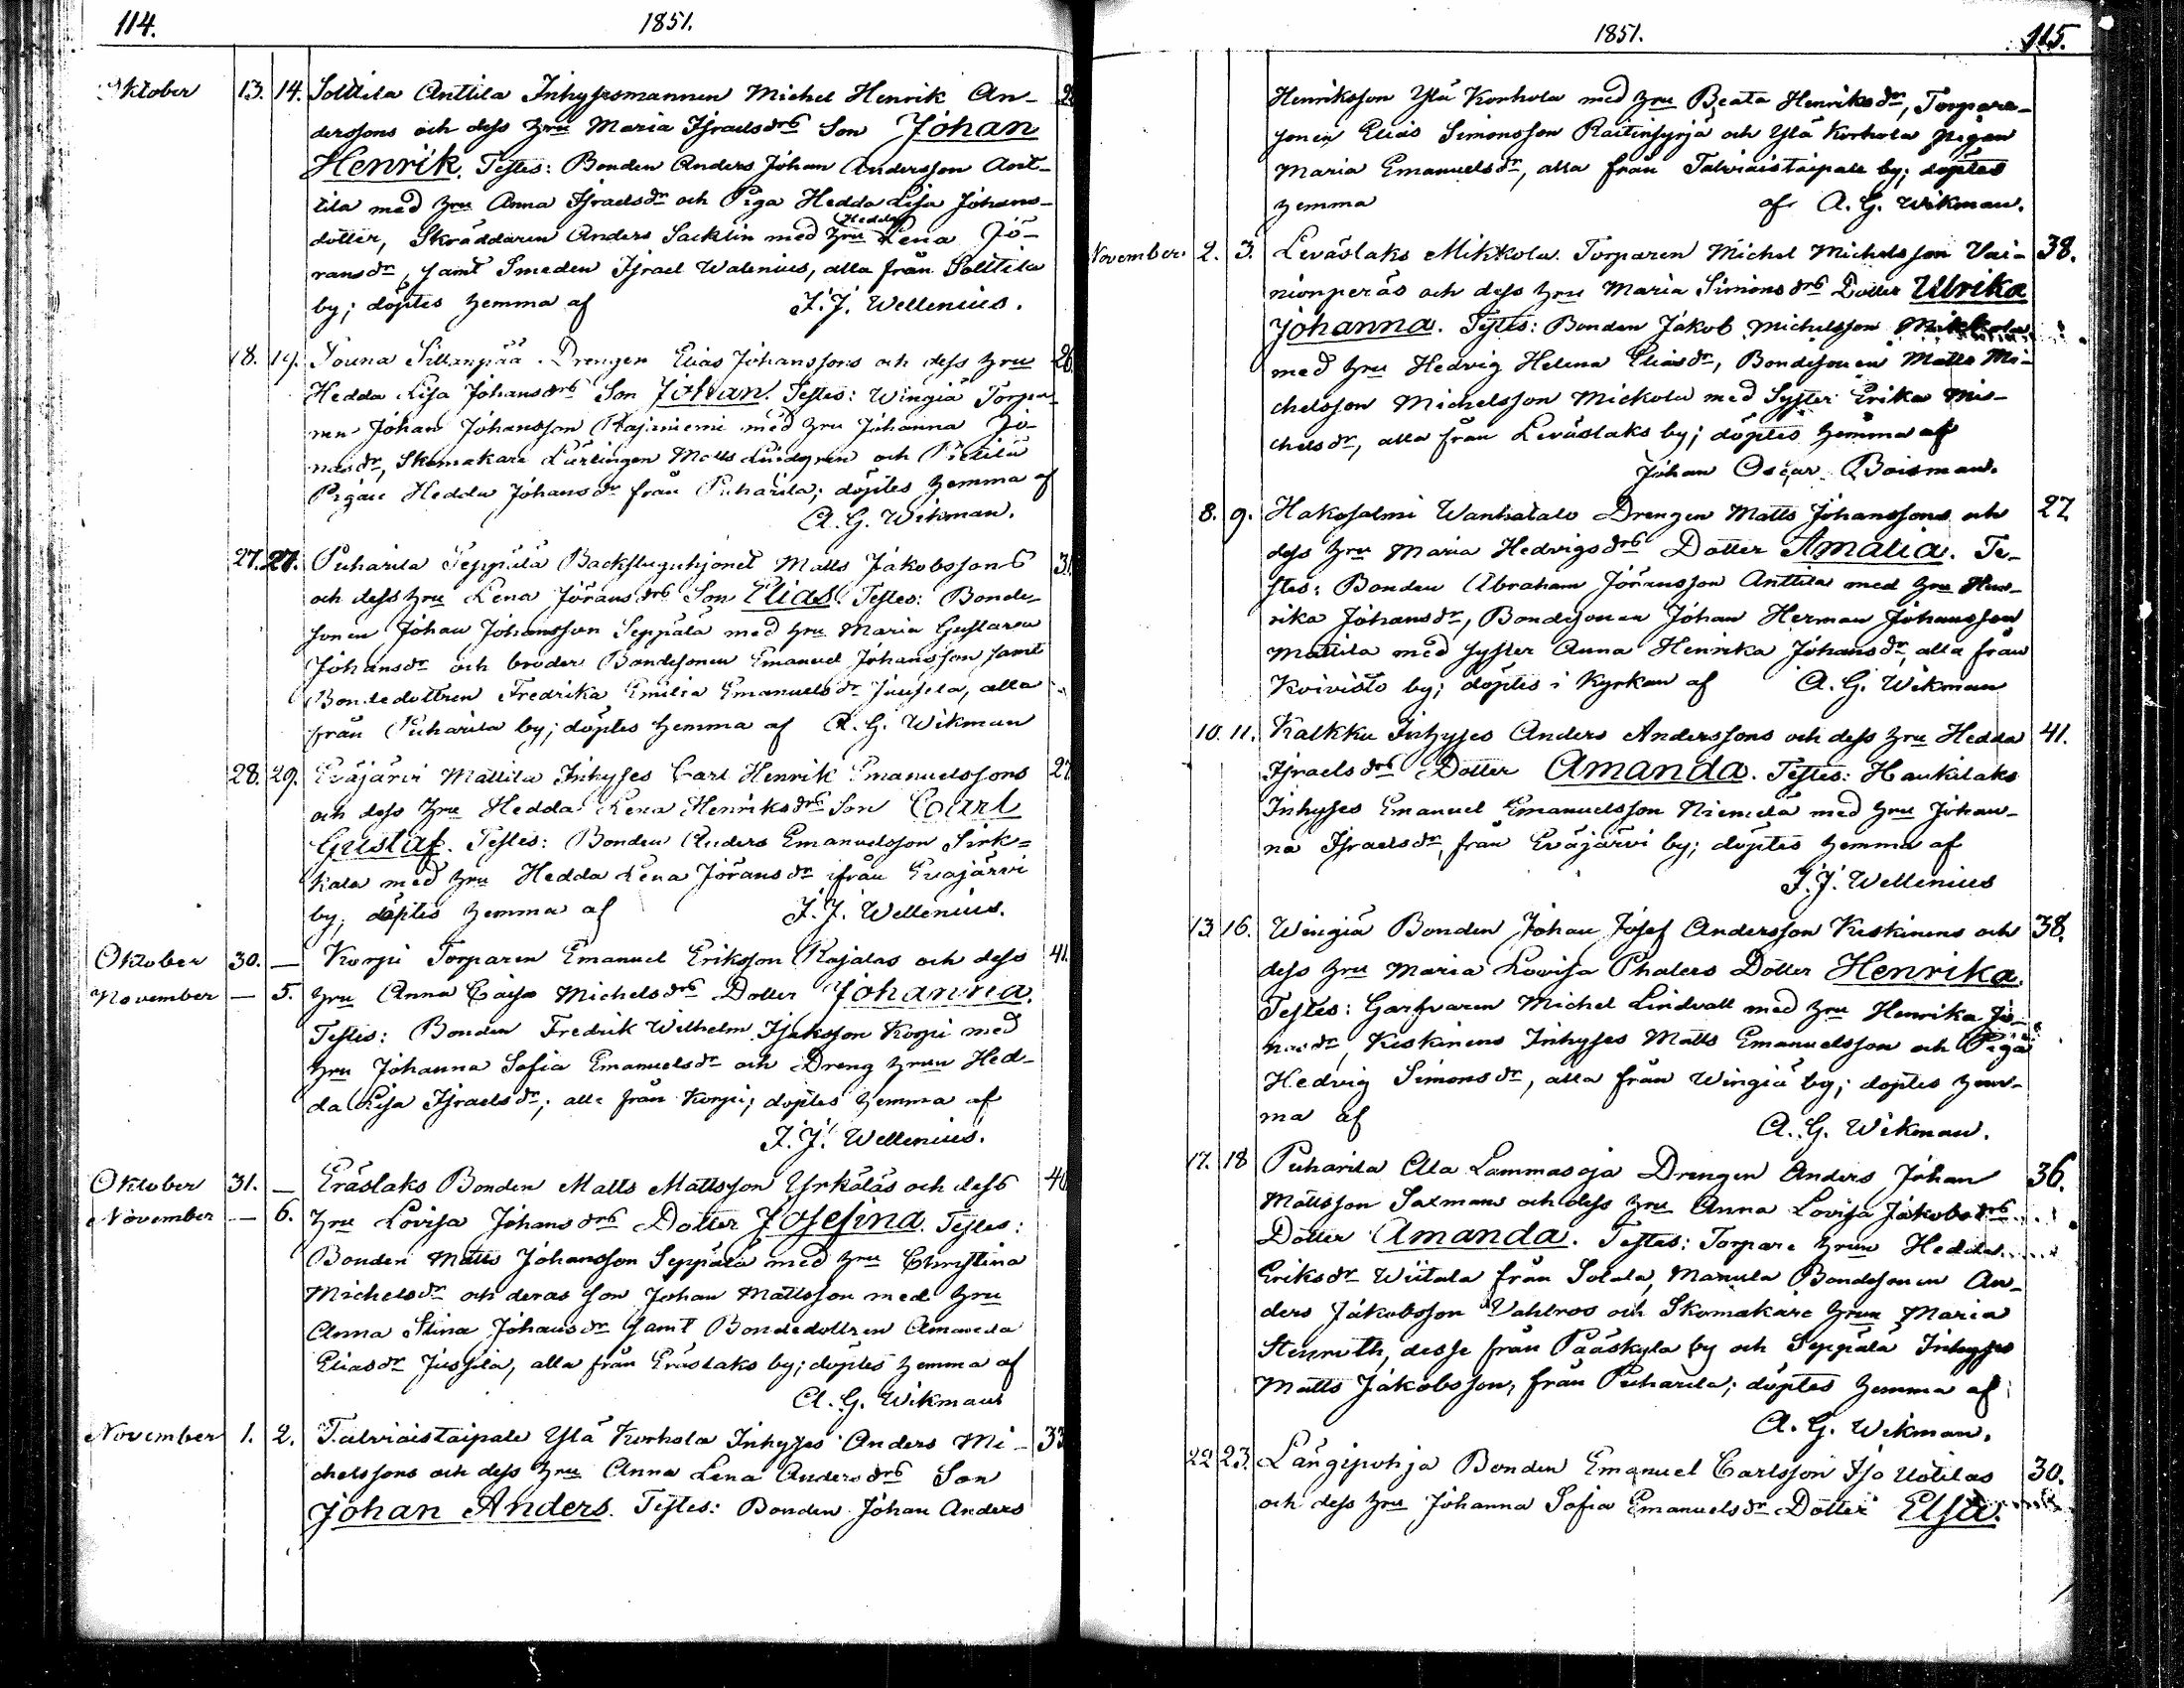 114. 1851.
Oktober 13. 14. Solttila Anttila Inhysesmannen Michel Henrik An-
derssons och dess hru Maria Israelsdrs Son Johan
Henrik. Testes: Bonden Anders Johan Andersson Ant-
tila med hru Anna Israelsdr och Piga Hedda Lisa Johans-
dotter, Skräddaren Anders Sacklin med hru Hedda Lena Jö-
ransdr, samt Smeden Israel Walenius, alla från Solttila
by; döptes hemma af J. J. Wellenius.
18. 19. Souna Sillanpää Drengen Elias Johanssons och dess hru 26
Hedda Lisa Johansdrs Son Johan. Testes: Wingiä Torpa-
ren Johan Johansson Rajaniemi med hru Johanna Jo-
nasdr, Skomakare Lärlingen Matts Lindgren och Pietilä
Pigan Hedda Johansdr från Puharila; döptes hemma af
A. G. Wikman.
27. 27. Puharila Seppälä Backstuguhjonet Matts Jakobssons 31
och dess hru Lena Jöransdrs Son Elias. Testes: Bonde-
sonen Johan Johansson Seppälä med hru Maria Gustava
Johansdr och broder Bondesonen Emanuel Johansson samt
Bondedottren Fredrika Emilia Emanuelsdr Juusela, alla
från Puharila by; döptes hemma af A. G. Wikman
28. 29. Eväjärvi Mattila Inhyses Carl Henrik Emanuelssons 27
och dess hru Hedda Lena Henriksdrs Son Carl
Gustaf. Testes: Bonden Anders Emanuelsson Sirk-
kala med hru Hedda Lena Jöransdr ifrån Eväjärvi
by; döptes hemma af J. J. Wellenius.
Oktober 30. — Korpi Torparen Emanuel Eriksson Rajalas och dess 41.
November — 5. hru Anna Caisa Michelsdrs Dotter Johanna.
Testes: Bonden Fredrik Wilhelm Isaksson Korpi med
hru Johanna Sofia Emanuelsdr och Dreng hrun Hed-
da Lisa Israelsdr; alla från Korpi; döptes hemma af
J. J. Wellenius.
Oktober 31. — Eräslaks Bonden Matts Mattsson Yrköläs och dess 40
November — 6. hru Lovisa Johansdrs Dotter Josefina. Testes:
Bonden Matts Johansson Seppälä med hru Christina
Michelsdr och deras son Johan Mattsson med hru
Anna Stina Johansdr samt Bondedottren Amanda
Eliasdr Jussila, alla från Eräslaks by; döptes hemma af
A. G. Wikman
November 1. 2. Talviaistaipale Ylä Korhola Inhyses Anders Mi- 33
chelssons och dess hru Anna Lena Andersdrs Son
Johan Anders. Testes: Bonden Johan Anders
1851. 115.
Henriksson Ylä Korhola med hru Beata Henriksdr, Torpare-
sonen Elias Simonsson Raitinsyrjä och Ylä Korhola pigan
Maria Emanuelsdr, alla från Talviaistaipale by; döptes
hemma af A. G. Wikman.
November 2. 3. Leväslaks Mikkola Torparen Michel Michelsson Vai- 38.
nionperäs och dess hru Maria Simonsdrs Dotter Ulrika
Johanna. Testes: Bonden Jakob Michelsson Mikkola
med hru Hedvig Helena Eliasdr, Bondesonen Matts Mi-
chelsson Michelsson Mickola med Syster Erika Mi-
chelsdr, alla från Leväslaks by; döptes hemma af
Johan Oscar Boisman.
8. 9. Hakosalmi Wanhatalo Drengen Matts Johanssons och 27
dess hru Maria Hedvigsdrs Dotter Amalia. Te-
stes: Bonden Abraham Jöransson Anttila med hru Hen-
rika Johansdr, Bondesonen Johan Herman Johansson
Mattila med syster Anna Henrika Johansdr, alla från
Koivisto by; döptes i Kyrkan af A. G. Wikman
10. 11. Kalkku Inhyses Anders Anderssons och dess hru Hedda 41.
Israelsdrs Dotter Amanda. Testes: Haukilaks
Inhyses Emanuel Emanuelsson Niemelä med hru Johan-
na Israelsdr, från Eväjärvi by; döptes hemma af
J. J. Wellenius
13 16. Wingiä Bonden Johan Josef Andersson Keskinens och 38.
dess hru Maria Lovisa Phalers Dotter Henrika.
Testes: Garfvaren Michel Lindvall med hru Henrika Jo-
nasdr, Keskinens Inhyses Matts Emanuelsson och Piga
Hedvig Simonsdr, alla från Wingiä by; döptes hem-
ma af A. G. Wikman.
17. 18 Puharila Ala Lammasoja Drengen Anders Johan 36.
Mattsson Saxmans och dess hru Anna Lovisa Jakobsdrs
Dotter Amanda. Testes: Torpare hrun Hedda
Eriksdr Wiitala från Solala, Manula Bondesonen An-
ders Jakobsson Vahlroos och Skomakare hrun Maria
Stenroth, desse från Pääskylä by och Seppälä Inhyses
Matts Jakobsson, från Puharila; döptes hemma af
A. G. Wikman.
22 23. Längipohja Bonden Emanuel Carlsson Iso Uotilas 30.
och dess hru Johanna Sofia Emanuelsdr Dotter Elsa.